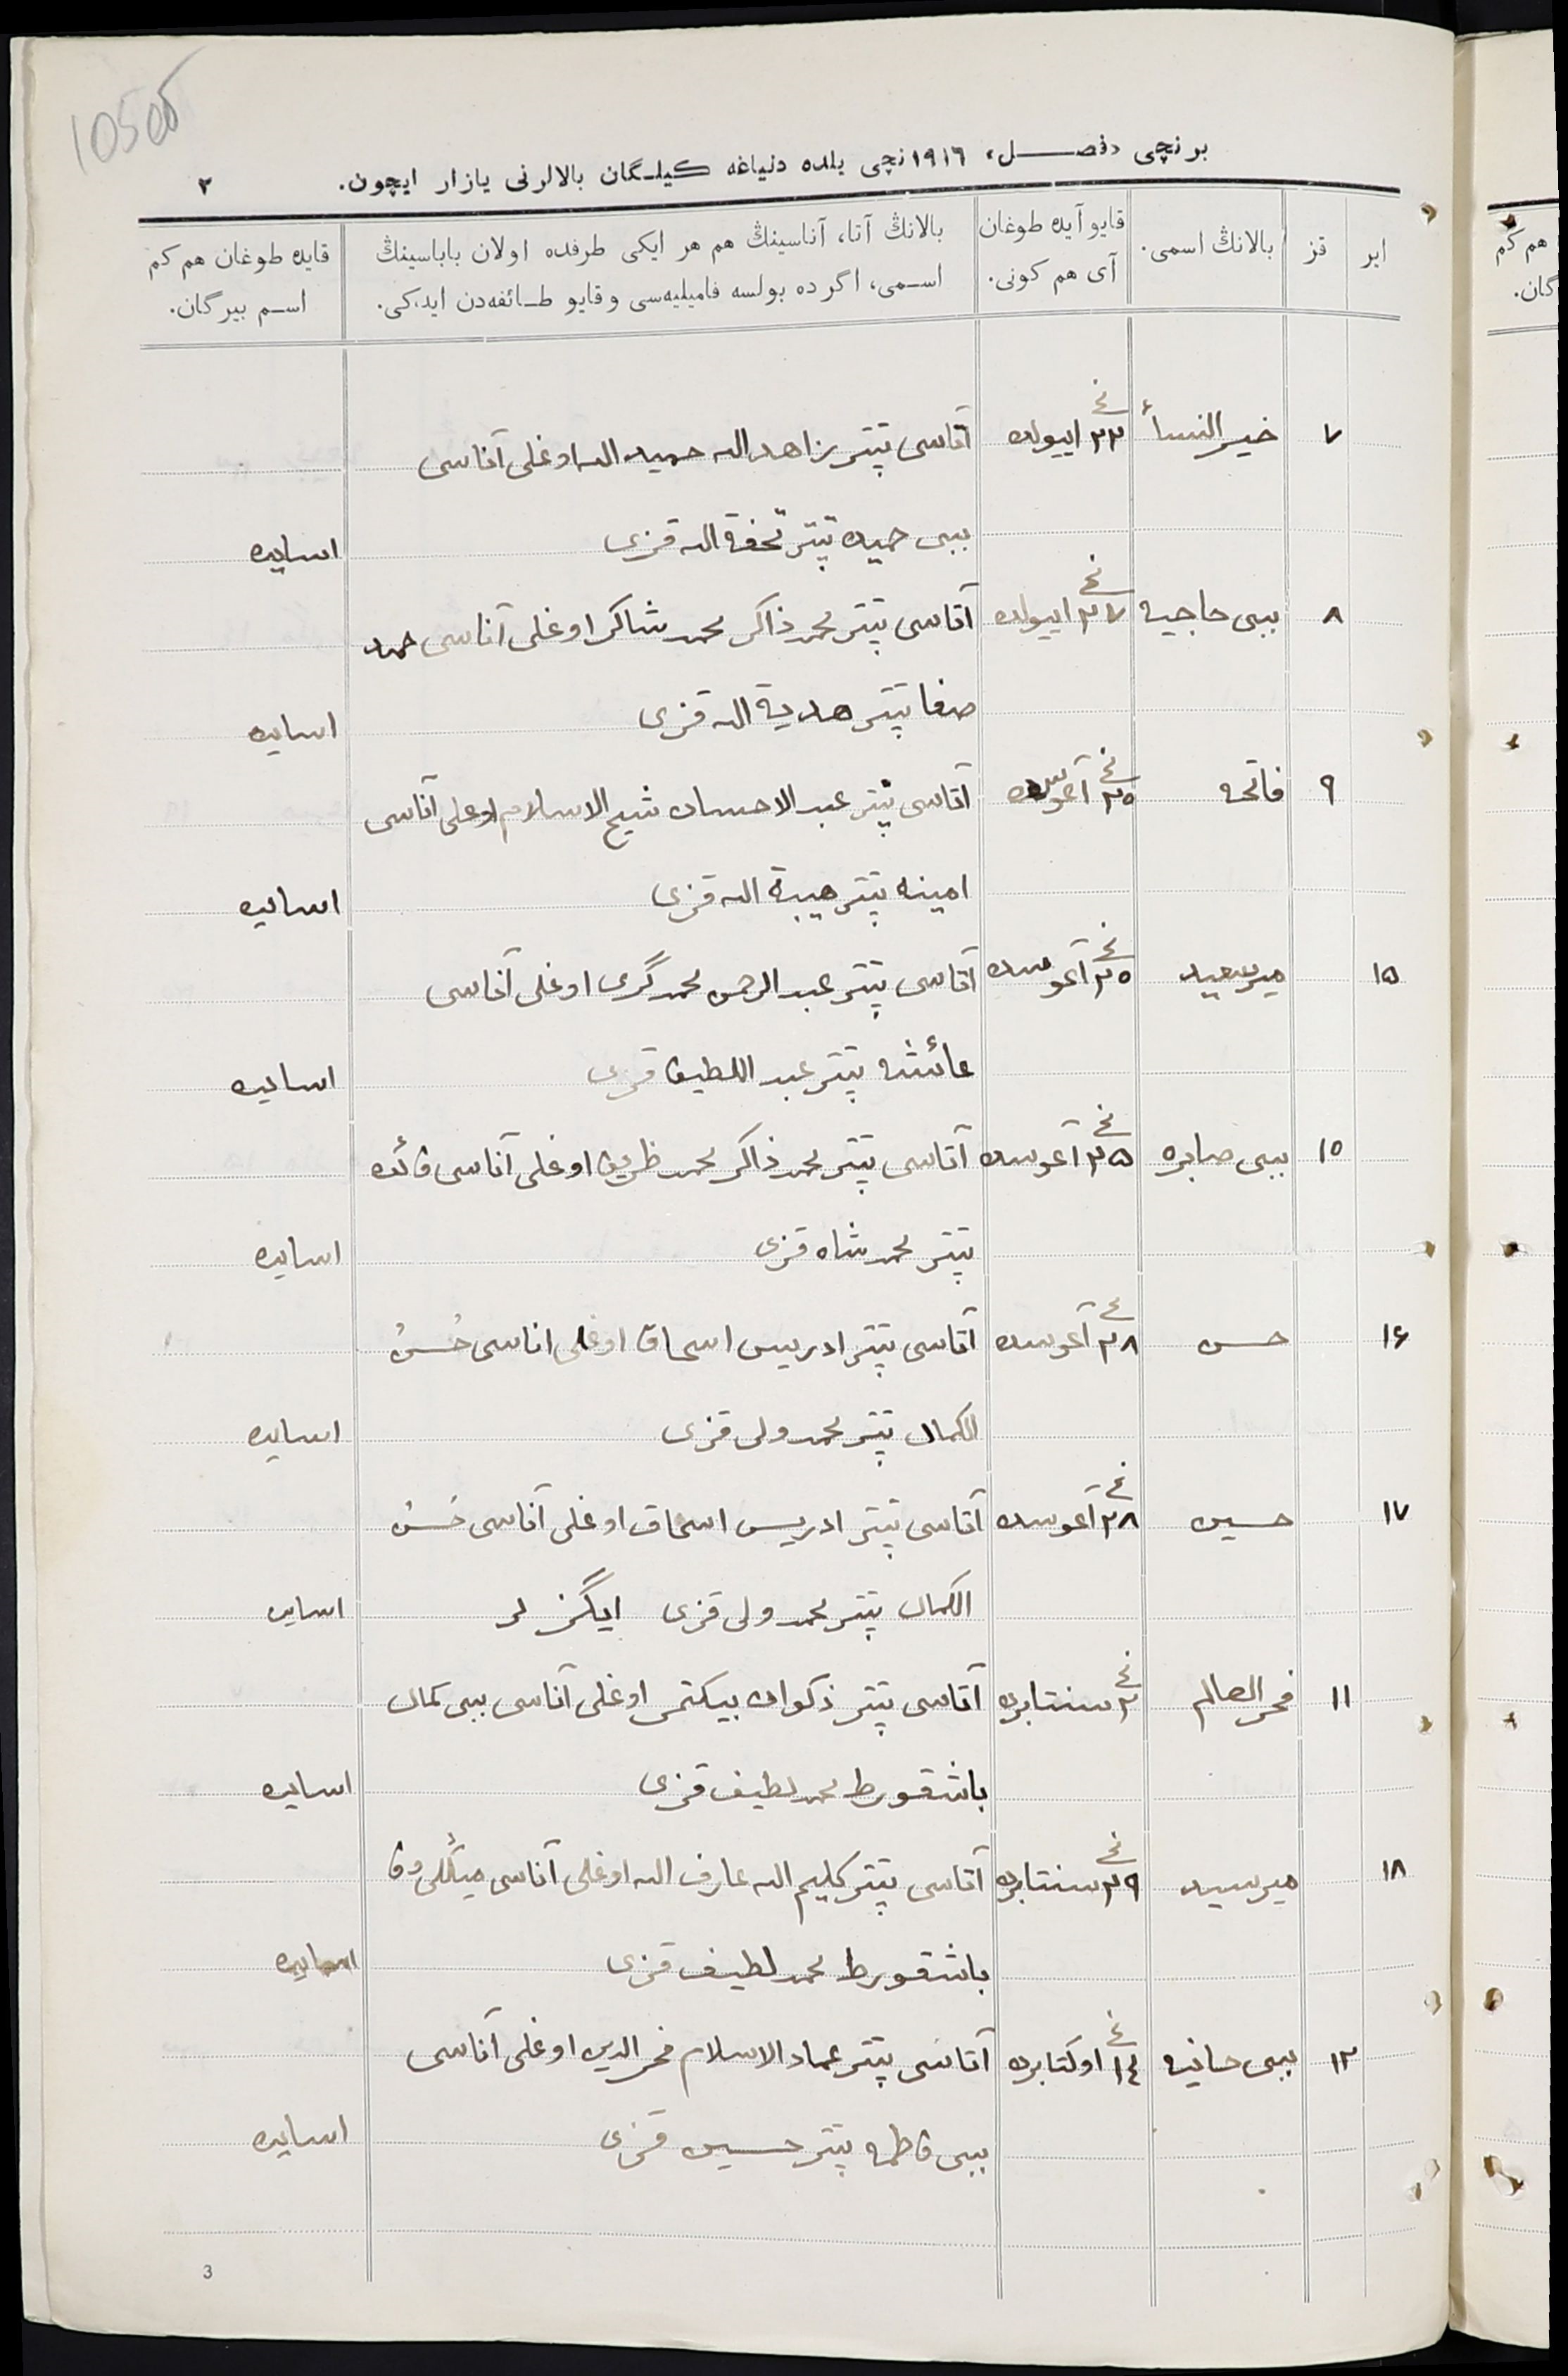 10505
برنچی «فصل» ١٩١٦نچی یلده دنیاغه کیلگان بالالرنی یازار ایچون. ٣
ایر
قز
بالانڭ اسمی.
قایو آیده طوغان
آی هم کونی.
بالانڭ آتا، آناسینڭ هم هر ایکی طرفده اولان باباسینڭ
اسمی، اگرده بولسه فامیلیه‌سی و قایو طائفه‌دن ایدکی.
قایده طوغان هم کم
اسم بیرگان.
٧ خیر النسأ ٢٣نچی اییولده آتاسی تپتر زاهد الله حمید الله اوغلی آناسی
بیبی حمیده تپتر تحفة الله قزی اسایده
٨ بیبی حاجیه ٢٧نچی اییولده آتاسی تپتر محمد ذاکر محمد شاکر اوغلی آناسی حمد
صفا تپتر هدیة الله قزی اسایده
٩ فاتحه ٢٠نچی آغوسده آتاسی تپتر عبد الاحسان شیخ الاسلام اوغلی آناسی
امینه تپتر هیبة الله قزی اسایده
١٥ میرسعید ٢٠نچی آغوسده آتاسی تپتر عبد الرحمن محمد گری اوغلی آناسی
عائشه تپتر عبد اللطیف قزی اسایده
١٠ بیبی صابره ٢٥نچی آغوسده آتاسی تپتر محمد ذاکر محمد ظریف اوغلی آناسی فائده
تپتر محمد شاه قزی اسایده
١۶ حسن ٢٨نچی آغوسده آتاسی تپتر ادریس اسحاق اوغلی اناسی حُسنُ
الکمال تپتر محمد ولی قزی اسایده
١٧ حسین ٢٨نچی آغوسده آتاسی تپتر ادریس اسحاق اوغلی آناسی حُسنُ
الکمال تپتر محمد ولی قزی ایگزلر اسایده
١١ فخر العالم ٢نچی سنتابرده آتاسی تپتر ذکوان بیکتمر اوغلی آناسی بیبی کمال
باشقورط محمد لطیف قزی اسایده
١٨ میرسید ٢٩نچی سنتابرده آتاسی تپتر کلیم الله عارف الله اوغلی آناسی
باشقورط محمد لطیف قزی اسایده
١٢ بیبی حانیه ١٤نچی اوکتابرده آتاسی تپتر عماد الاسلام فخر الدین اوغلی آناسی
بیبی فاطمه تپتر حسین قزی اسایده
3
هم کم
گان.